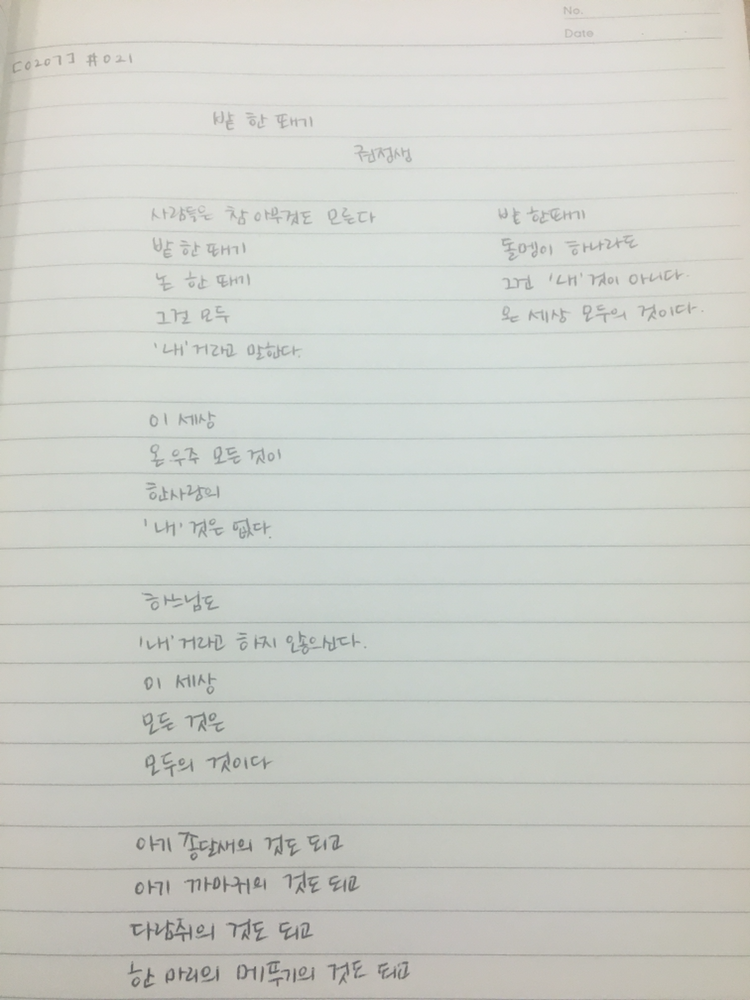 No.
Date
[0207] #021
밭 한 뙈기
권정생
사람들은 참 아무것도 모른다
밭 한 뙈기
논 한 뙈기
그걸 모두
'내' 거라고 말한다.
이 세상
온 우주 모든 것이
한사람의
'내' 것은 없다.
하느님도
'내' 거라고 하지 않으신다.
이 세상
모든 것은
모두의 것이다
아기 종달새의 것도 되고
아기 까마귀의 것도 되고
다람쥐의 것도 되고
한 마리의 메뚜기의 것도 되고
밭 한뙈기
돌멩이 하나라도
그건 '내' 것이 아니다.
온 세상 모두의 것이다.